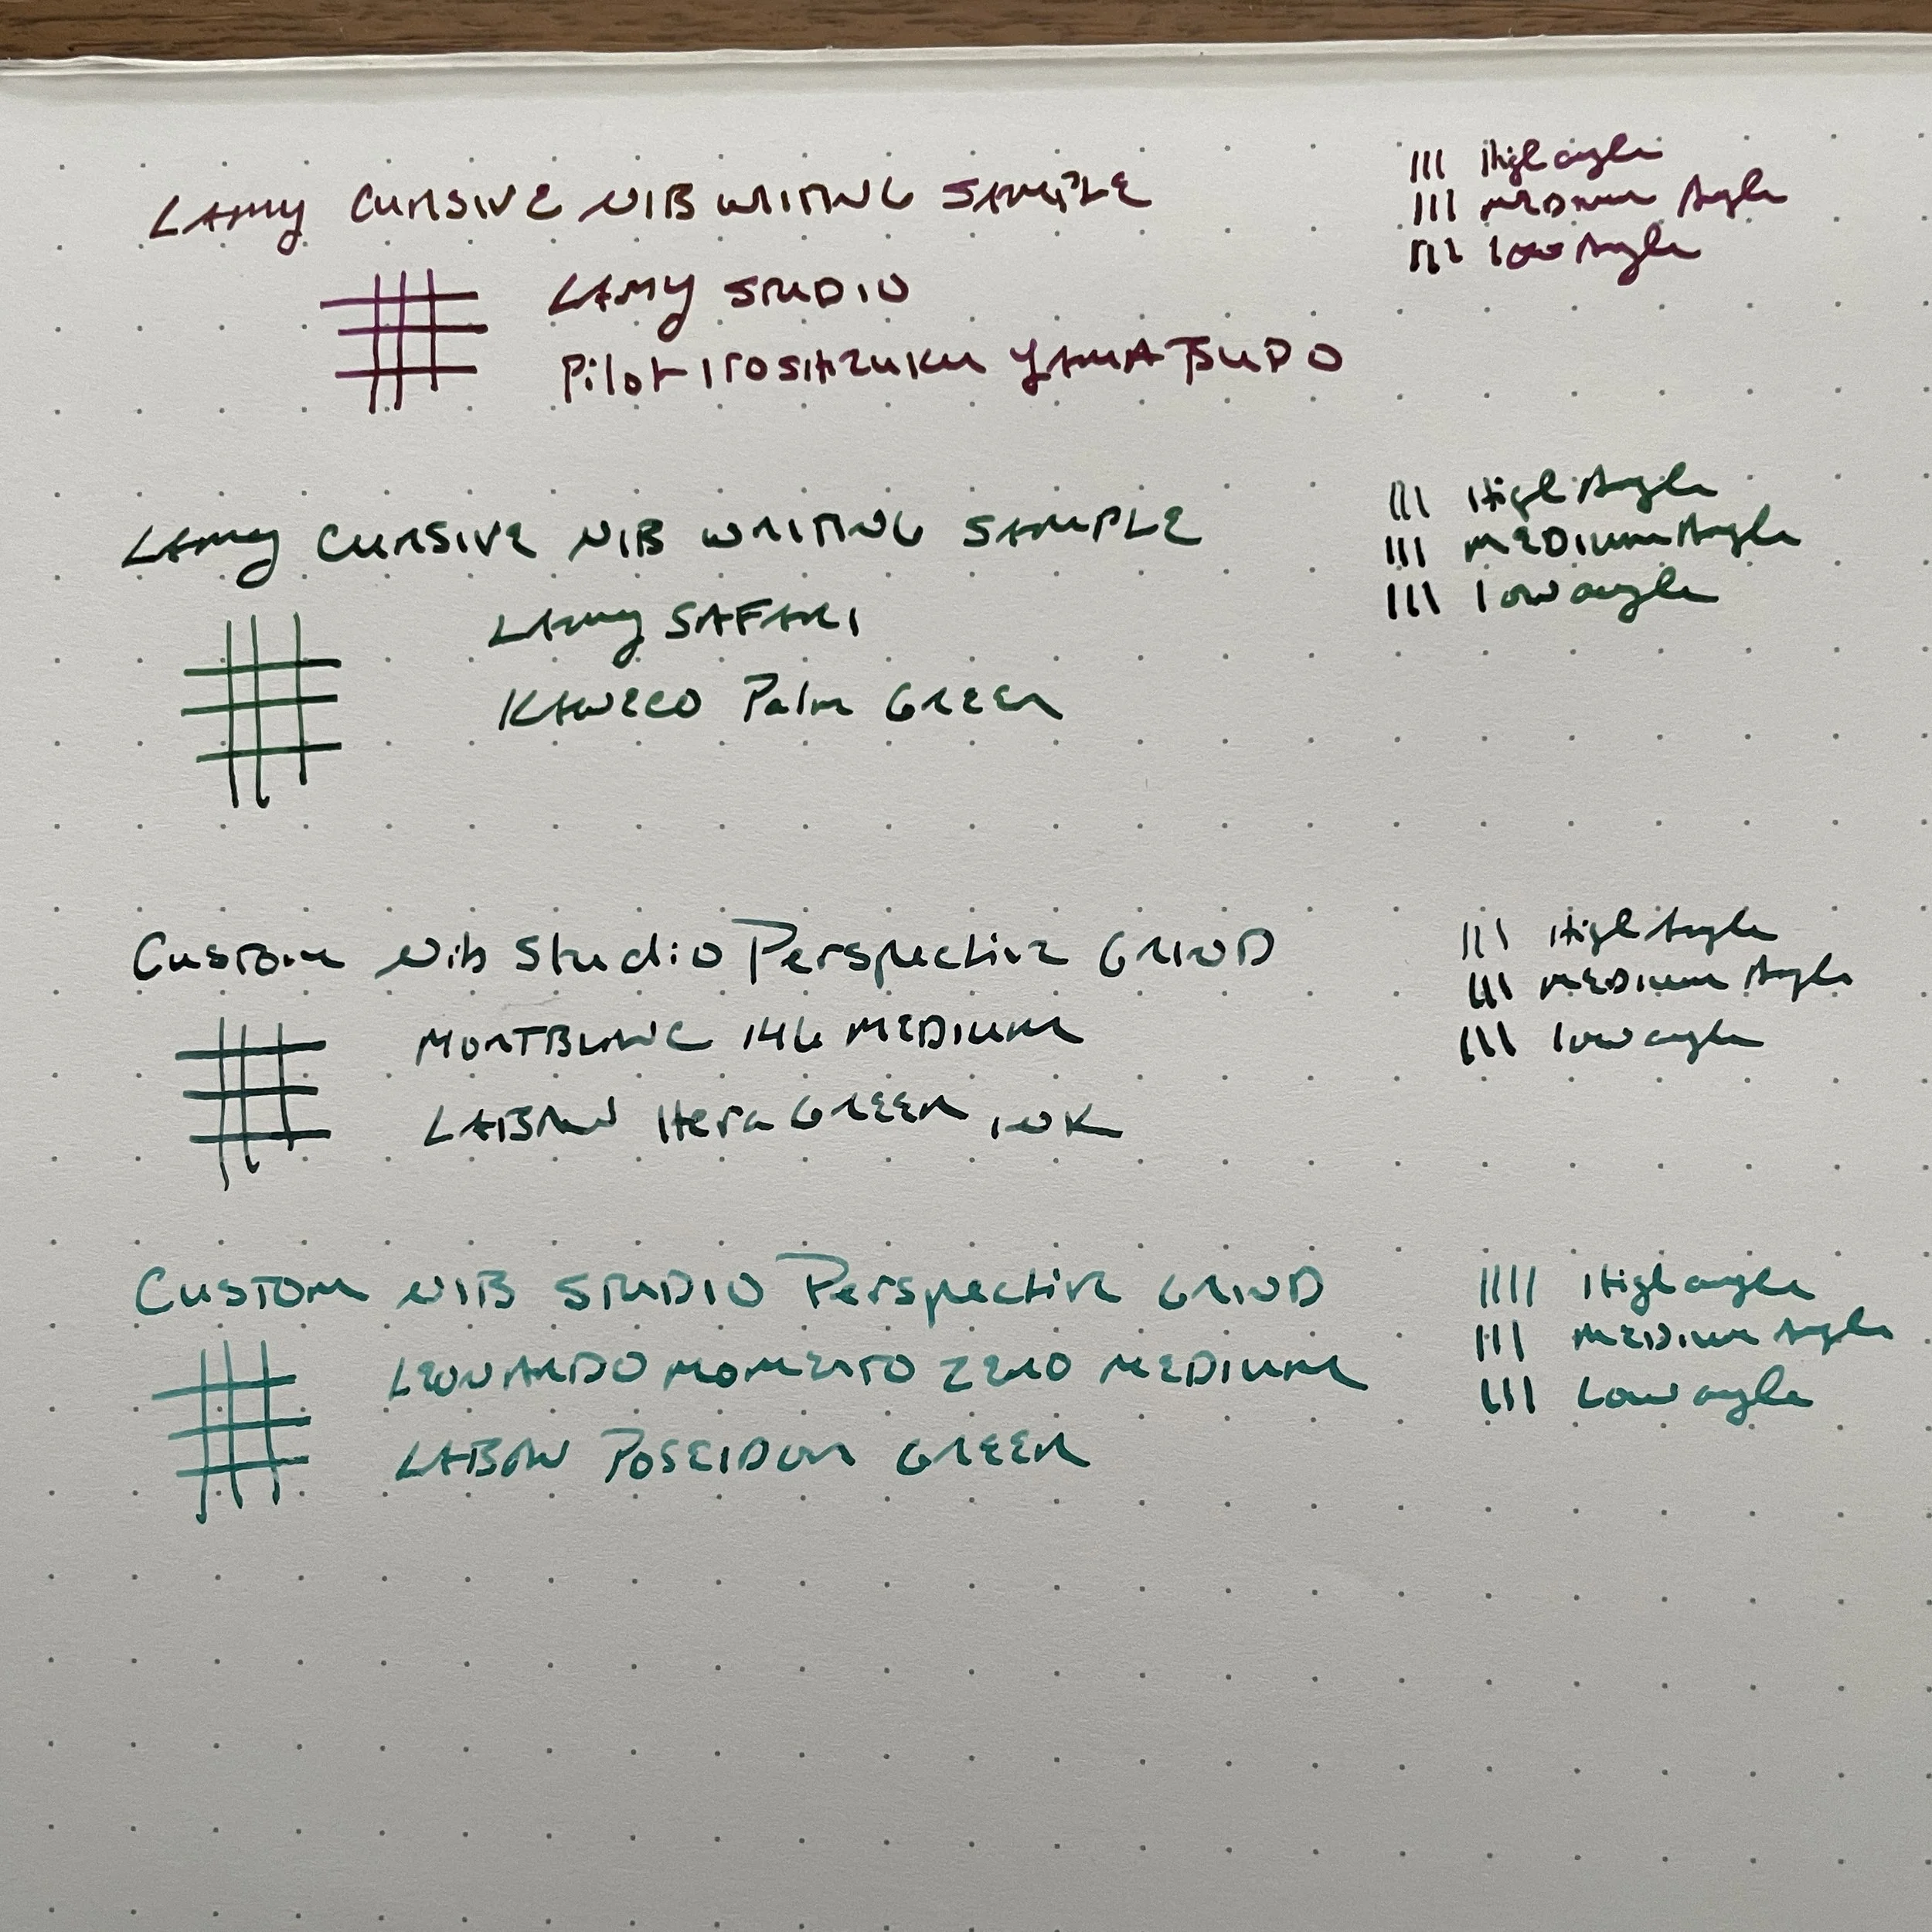 LAMY CURSIVE NIB WRITING SAMPLE
High angle
MEDIUM Angle
low Angle
LAMY STUDIO
Pilot IroSHIzuku YAMA TSUDO
LAMY CURSIVE NIB WRITING SAMPLE
High Angle
MEDIUM Angle
low angle
LAMY SAFARI
KAWECO Palm GREEN
Custom Nib Studio Perspective GRIND
High Angle
MEDIUM Angle
low angle
MONTBLANC 146 MEDIUM
LABAN Hera GREEN INK
CUSTOM NIB STUDIO Perspective GRIND
High angle
MEDIUM Angle
Low angle
LEONARDO MOMENTO ZERO MEDIUM
LABAN POSEIDON GREEN